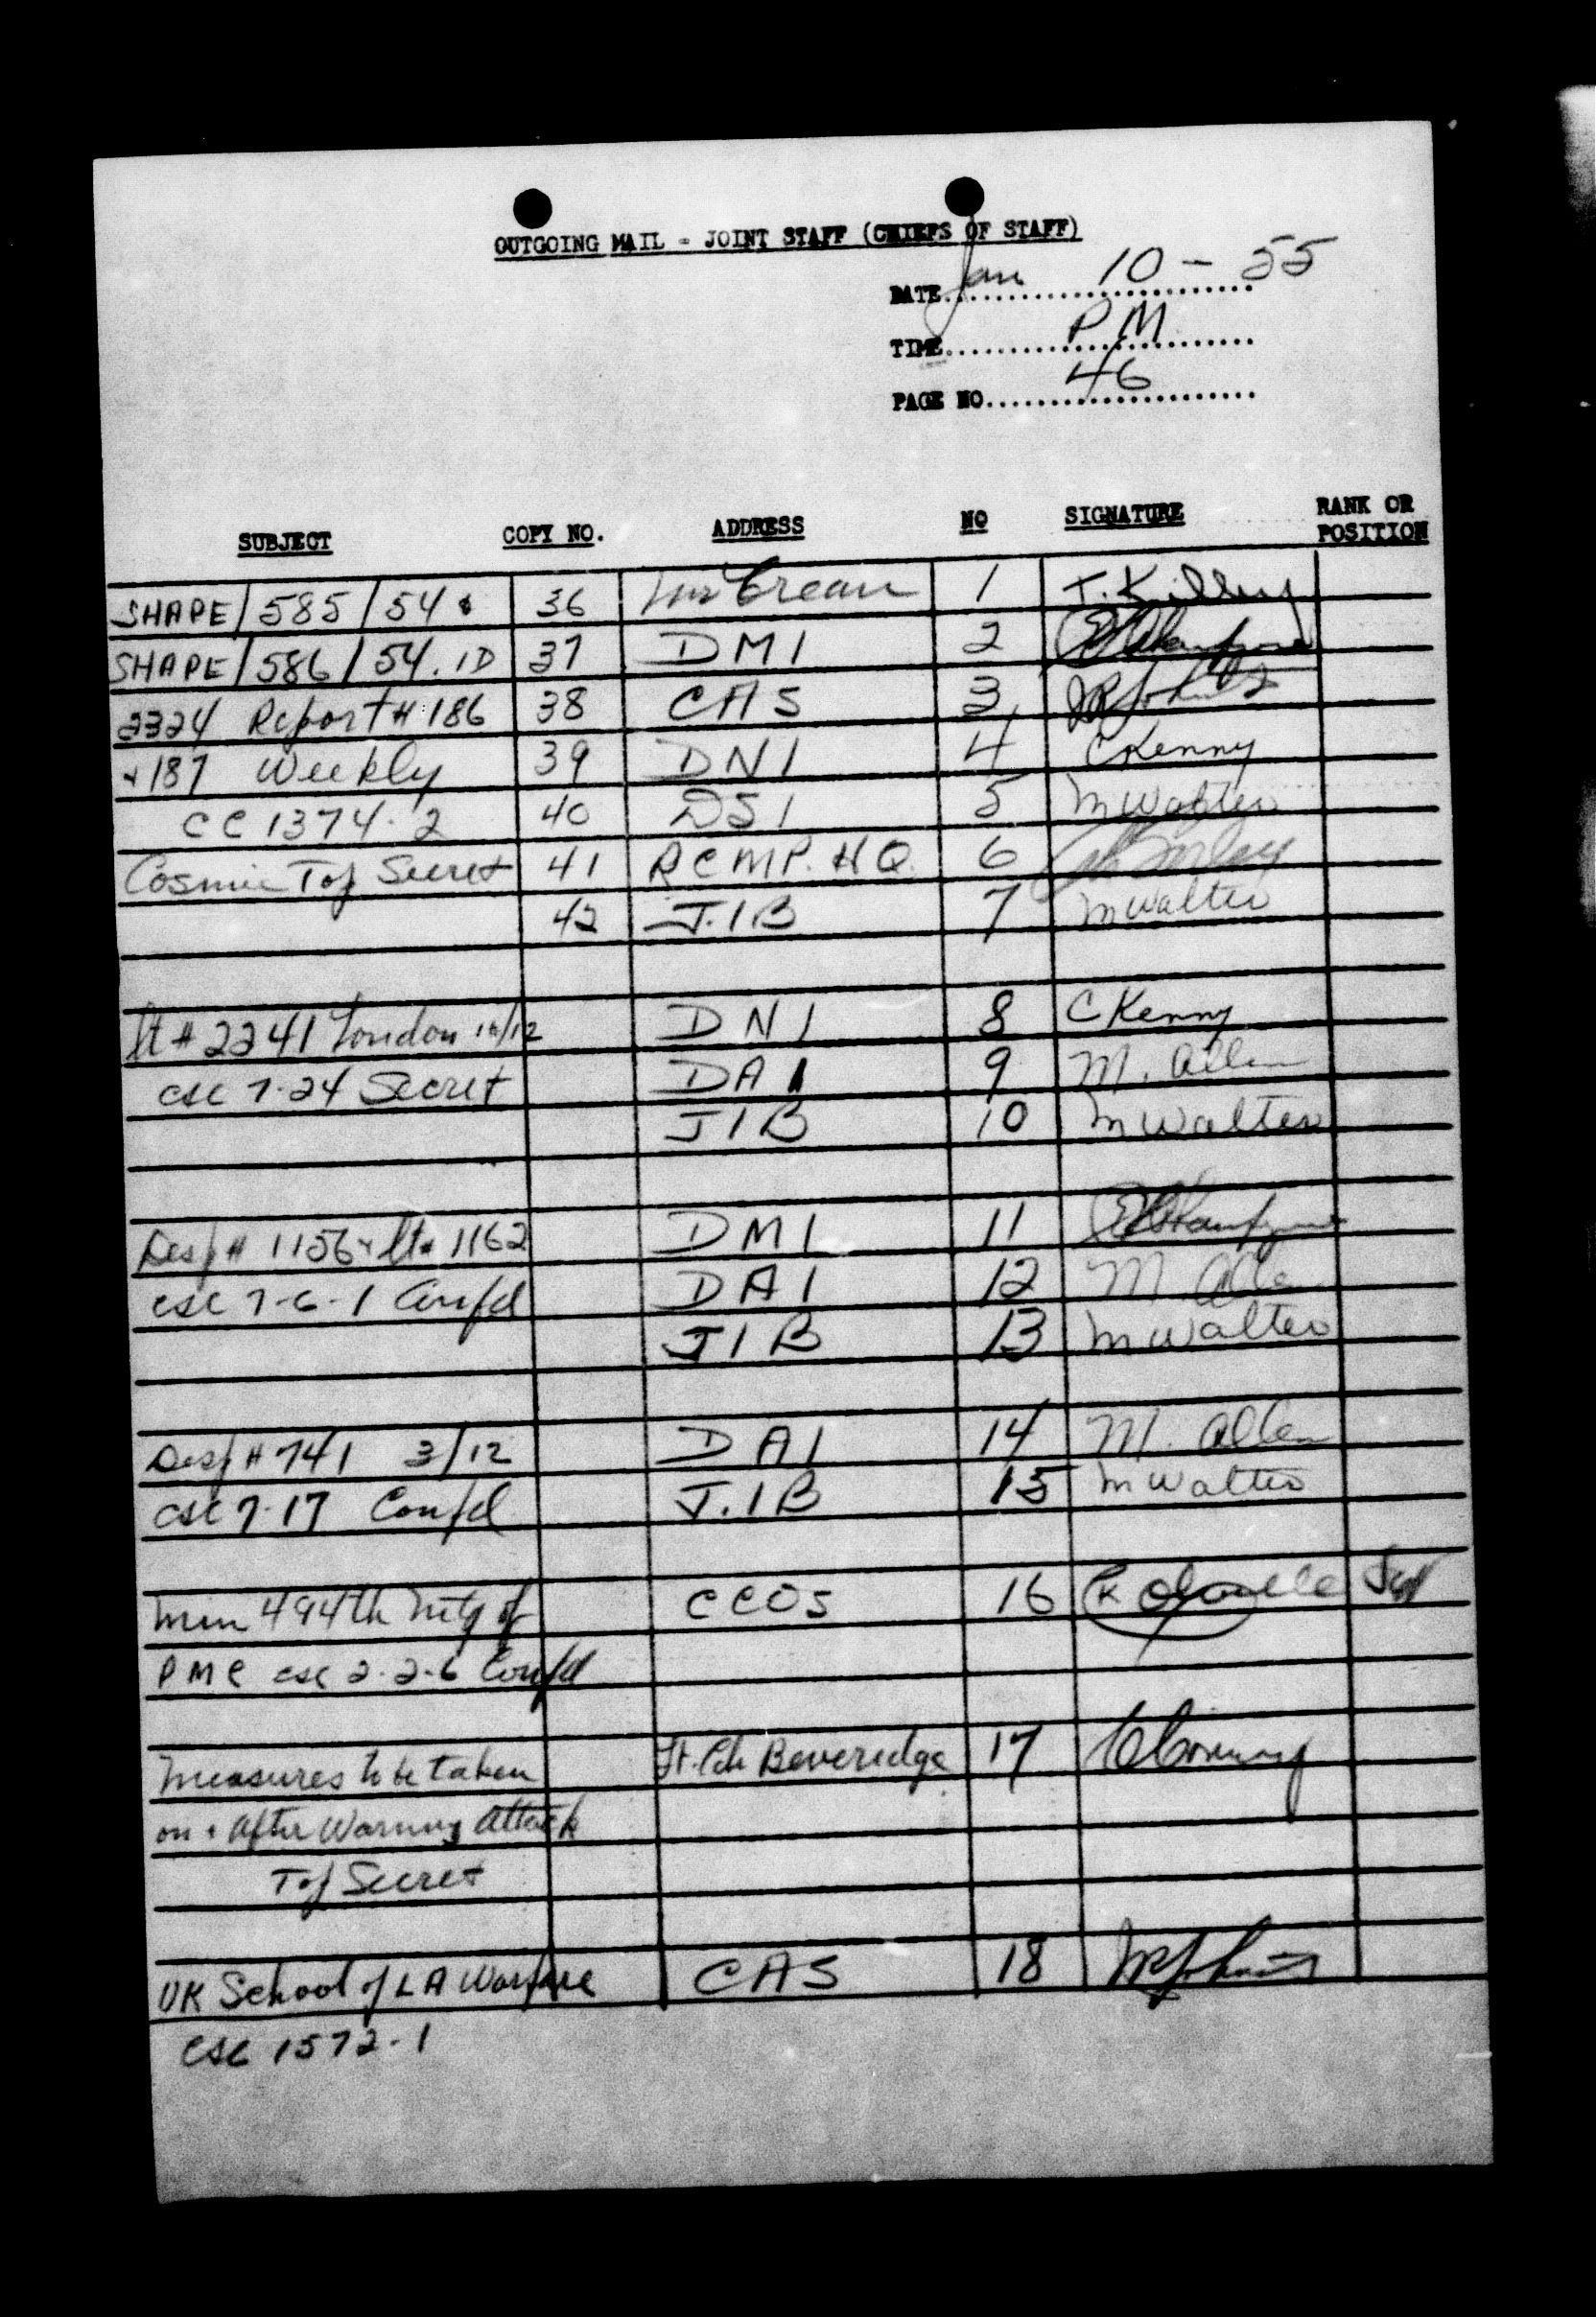 OUTGOING MAIL - JOINT STAFF (CHIEFS OF STAFF)
DATE Jan 10 - 55
TIME P M
PAGE NO 46
SUBJECT COPY NO. ADDRESS NO SIGNATURE RANK OR POSITION
SHAPE/585/54 & 36 Crean 1 T. Killey
SHAPE/586/54. ID 37 DMI 2
2324 Report # 186 38 CAS 3
+ 187 Weekly 39 DNI 4 C Kenny
CC 1374-2 40 DSI 5 M Walter
Cosmic Top Secret 41 RCMP. HQ. 6
42 J.IB 7 M Walter
lt # 2241 London 16/12 DNI 8 C Kenny
csc 7-24 Secret DAI 9 M. Allen
JIB 10 M Walter
Desp # 1156 & lt # 1162 DMI 11
csc 7-6-1 Confd DAI 12 M. Allen
JIB 13 M Walter
Desp # 741 3/12 DAI 14 M. Allen
csc 7-17 Confd J.IB 15 M Walter
Min 494th Mtg of CCOS 16
PMC csc 2-2-6 Confd
Measures to be taken Lt. Cdr Beveridge 17
on & After Warning Attack
Top Secret
UK School of LA Warfare CAS 18
CSC 1572-1